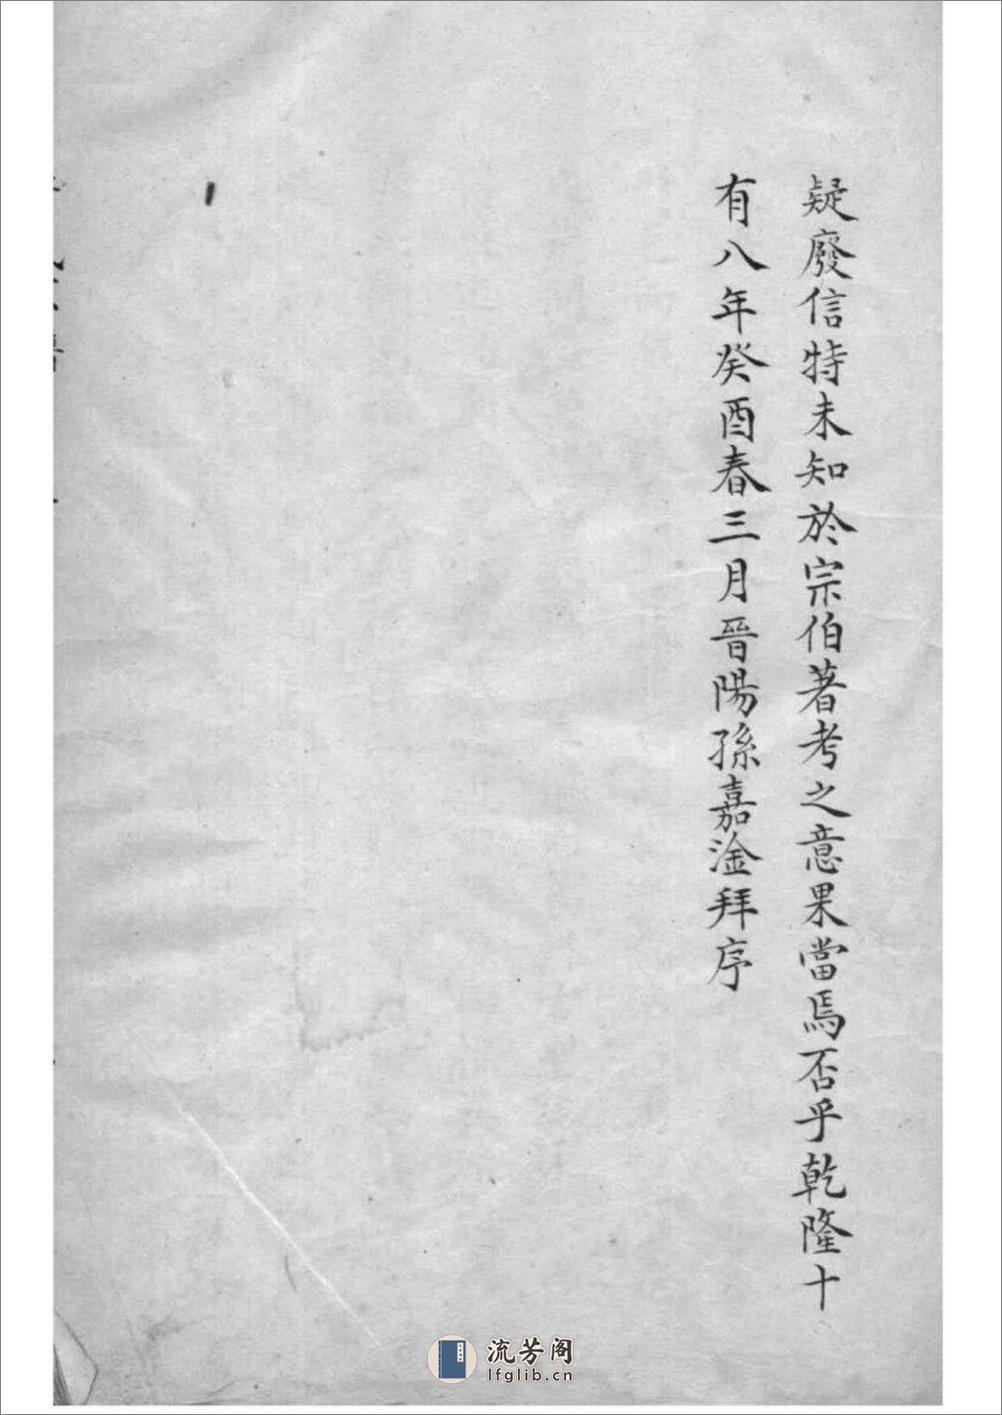 疑廢信特未知於宗伯著考之意果當焉否乎乾隆十
有八年癸酉春三月晉陽孫嘉淦拜序
流芳阁
lfglib.cn